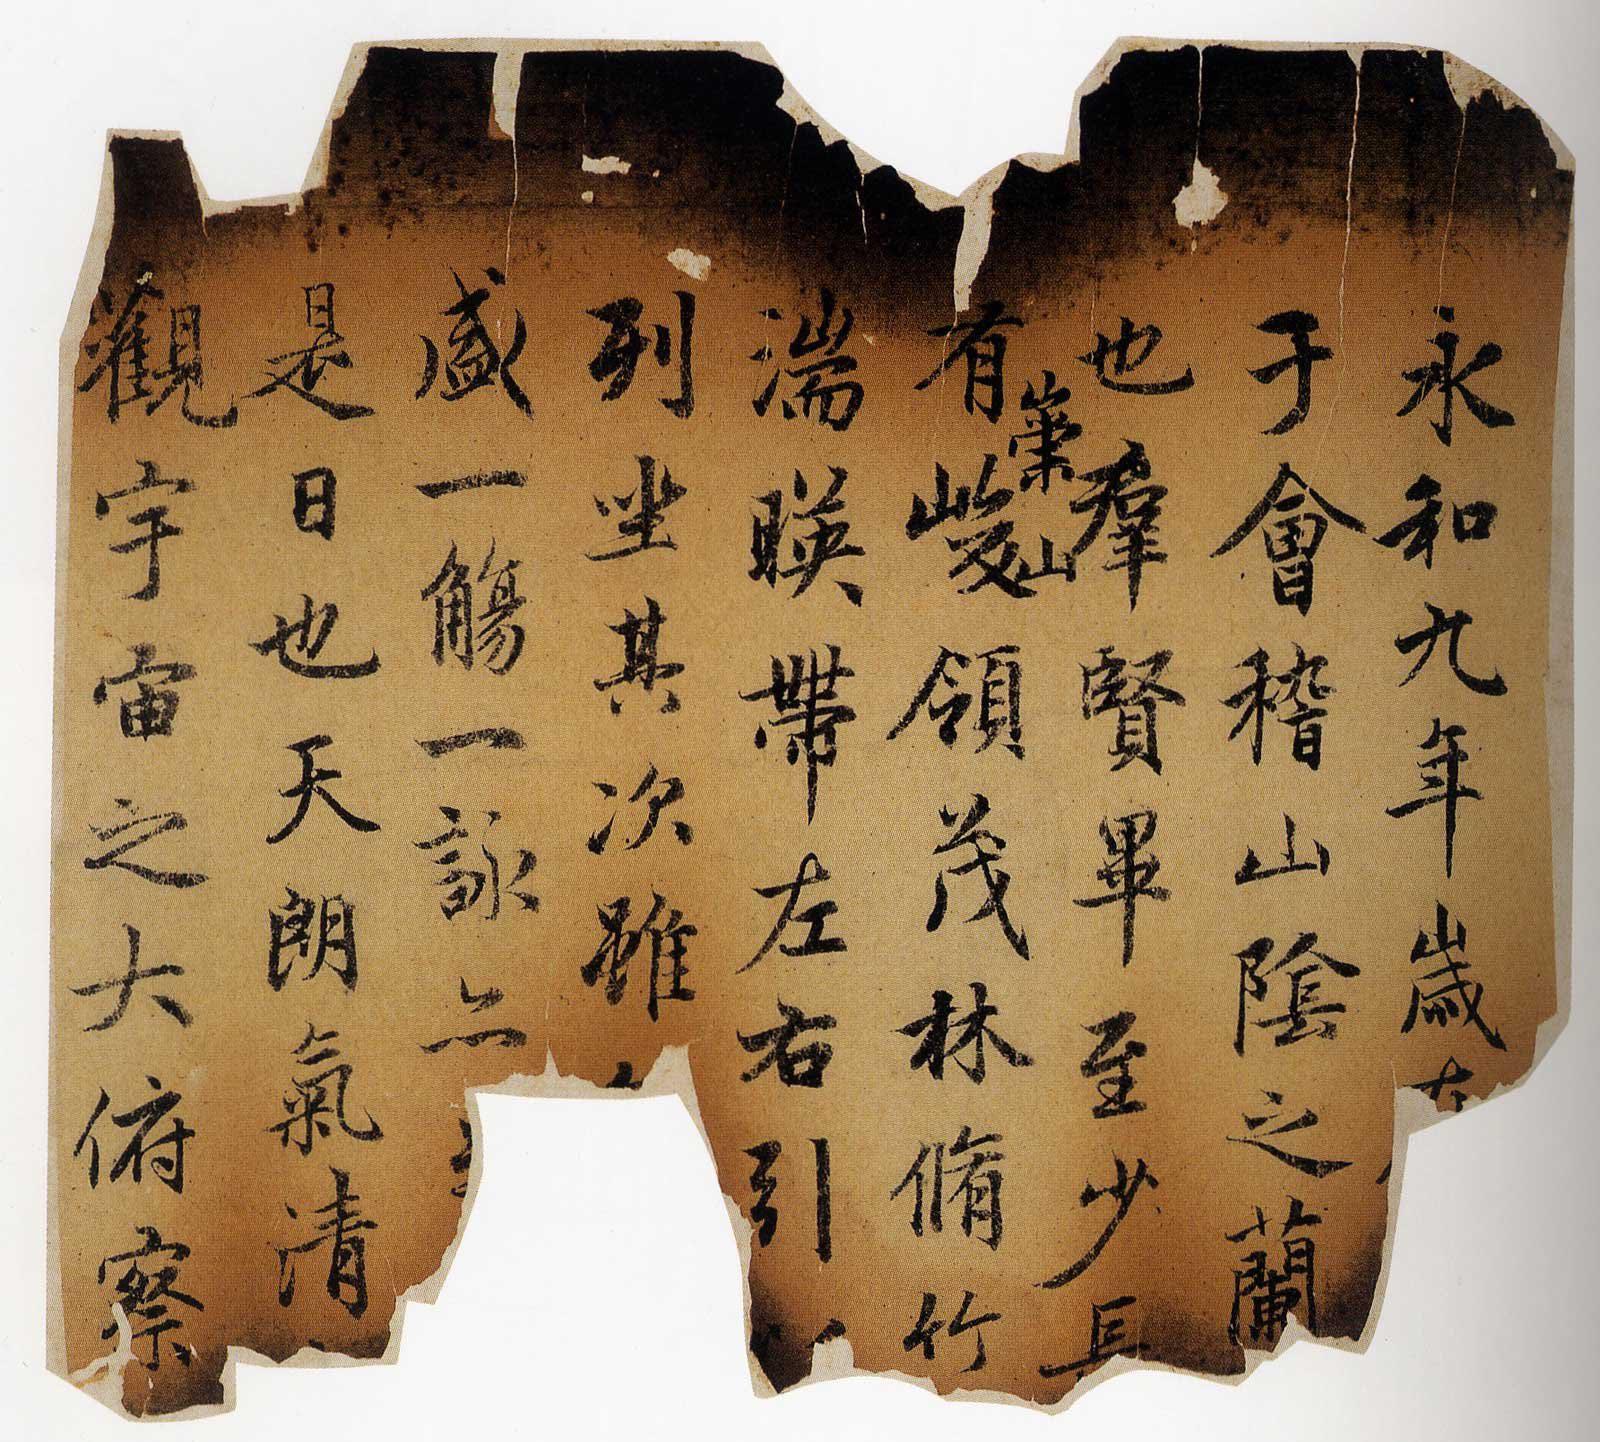 永和九年歲在
于會稽山陰之蘭
也羣賢畢至少長
崇山
有峻領茂林脩竹
湍暎帶左右引
列坐其次雖
盛一觴一詠亦
是日也天朗氣清
觀宇宙之大俯察